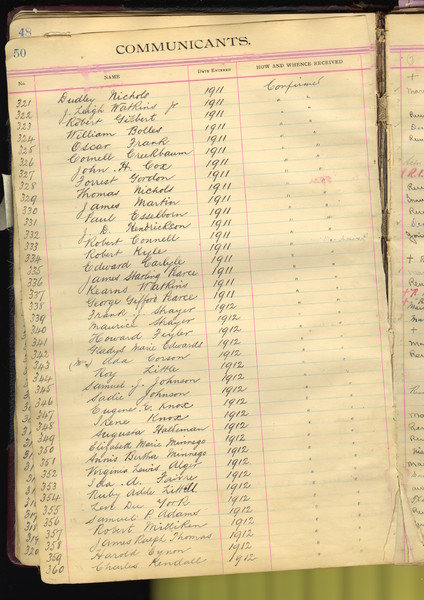 48
50
COMMUNICANTS.
No. NAME DATE ENTERED HOW AND WHENCE RECEIVED
321 Dudley Nichols 1911 Confirmed
322 J. Leigh Watkins Jr 1911 " "
323 Robert Gilbert 1911 " "
324 William Bolles 1911 " "
325 Oscar Frank 1911 " "
326 Cornell Crickbaum 1911 " "
327 John H. Cox 1911 " "
328 Forrest Gordon 1911 " "
329 Thomas Nichols 1911 " "
330 James Martin 1911 " "
331 Paul Esselborn 1911 " "
332 J. D. Hendrickson 1911 " "
333 Robert Connell 1911 " "
334 Robert Kyle 1911 " "
335 Edward Carlyle 1911 " "
336 James Starling Pearce 1911 " "
337 Kearns Watkins 1911 " "
338 George Gifford Pearce 1911 " "
339 Frank J. Shayer 1912 " "
340 Maurice Shayer 1912 " "
341 Howard Feyler 1912 " "
342 Gladys Marie Edwards 1912 " "
343 (Mrs) Ada Corson 1912 " "
344 Roy Little 1912 " "
345 Samuel J. Johnson 1912 " "
346 Sadie Johnson 1912 " "
347 Eugene E. Knox 1912 " "
348 Irene Knox 1912 " "
349 Augusta Halteman 1912 " "
350 Elizabeth Marie Minnego 1912 " "
351 Annis Bertha Minnego 1912 " "
352 Virginia Lewis Alger 1912 " "
353 Ida A. 1912 " "
354 Ruby Addie Littell 1912 " "
355 Levi Du York 1912 " "
356 Samuel P. Adams 1912 " "
357 Robert Milliken 1912 " "
358 James Ralph Thomas 1912 " "
359 Harold Eynon 1912 " "
360 Charles Kendall 1912 " "